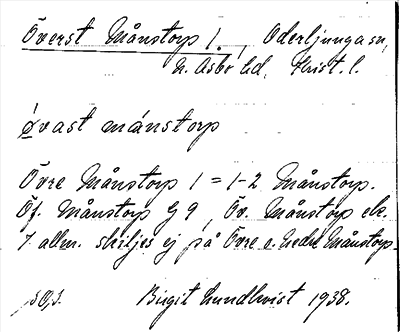 Överst Månstorp 1., Oderljunga sn,
N. Åsbo hd, Krist. l.
øvast månstorp
Övre Månstorp 1 = 1-2 Månstorp.
Öf. Månstorp G 9, Öv. Månstorp ek.
I allm. skiljes ej på Övre o. Nedre Månstorp
Birgit Lundkvist 1938.